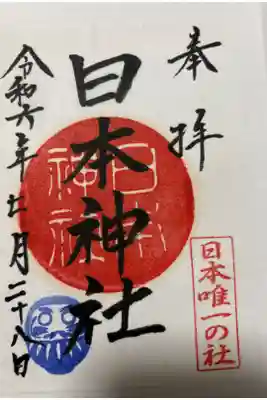 奉拝
日本唯一の社
日本神社
日本
神社
令和六年十一月二十八日